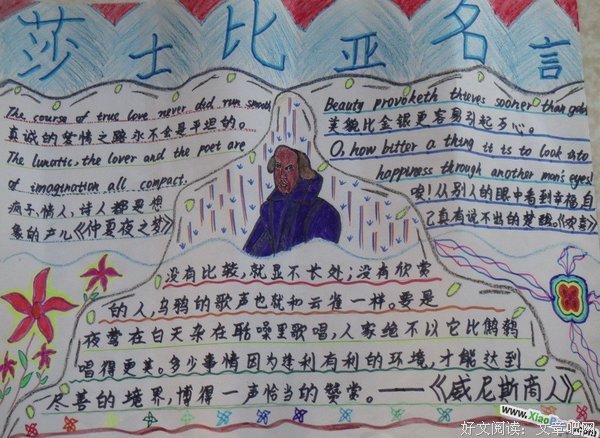 莎士比亚名言
The course of true love never did run smooth
真诚的爱情之路永不会是平坦的。
The lunatic, the lover and the poet are
of imagination all compact.
疯子、情人、诗人都是想
象的产儿《仲夏夜之梦》
Beauty provoketh thieves sooner than gold
美貌比金银更容易引起歹心。
O, how bitter a thing it is to look into
happiness through another men's eyes!
唉!从别人的眼中看到幸福,自
己真有说不出的楚!《欢喜》
没有比较,就显不长处;没有欣赏
的人,乌鸦的歌声也就和云雀一样。要是
夜莺在白天杂在聒噪里歌唱,人家绝不以它比鹪鹩
唱得更美。多少事情因为逢利有利的环境,才能达到
尽善的境界,博得一声恰当的赞赏。——《威尼斯商人》
www.Xiao
好文阅读:文章吧网